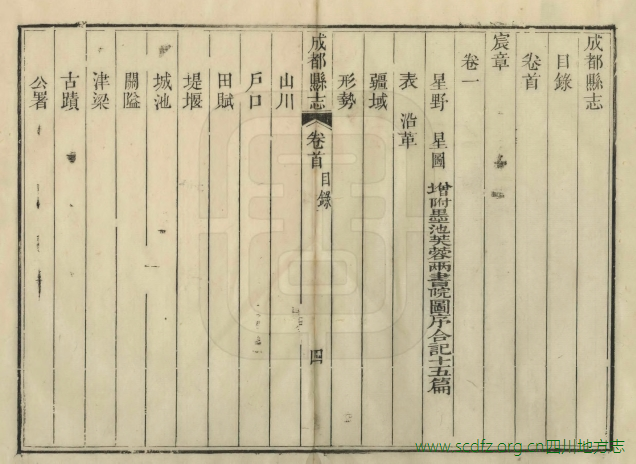 成都縣志
目錄
卷首
宸章
卷一
星野 星圖 增附墨池芙蓉兩書院圖序合記十五篇
表 沿革
疆域
形勢
成都縣志 卷首 目錄 四
山川
戶口
田賦
堤堰
城池
關隘
津梁
古蹟
公署
www.scdfz.org.cn四川地方志